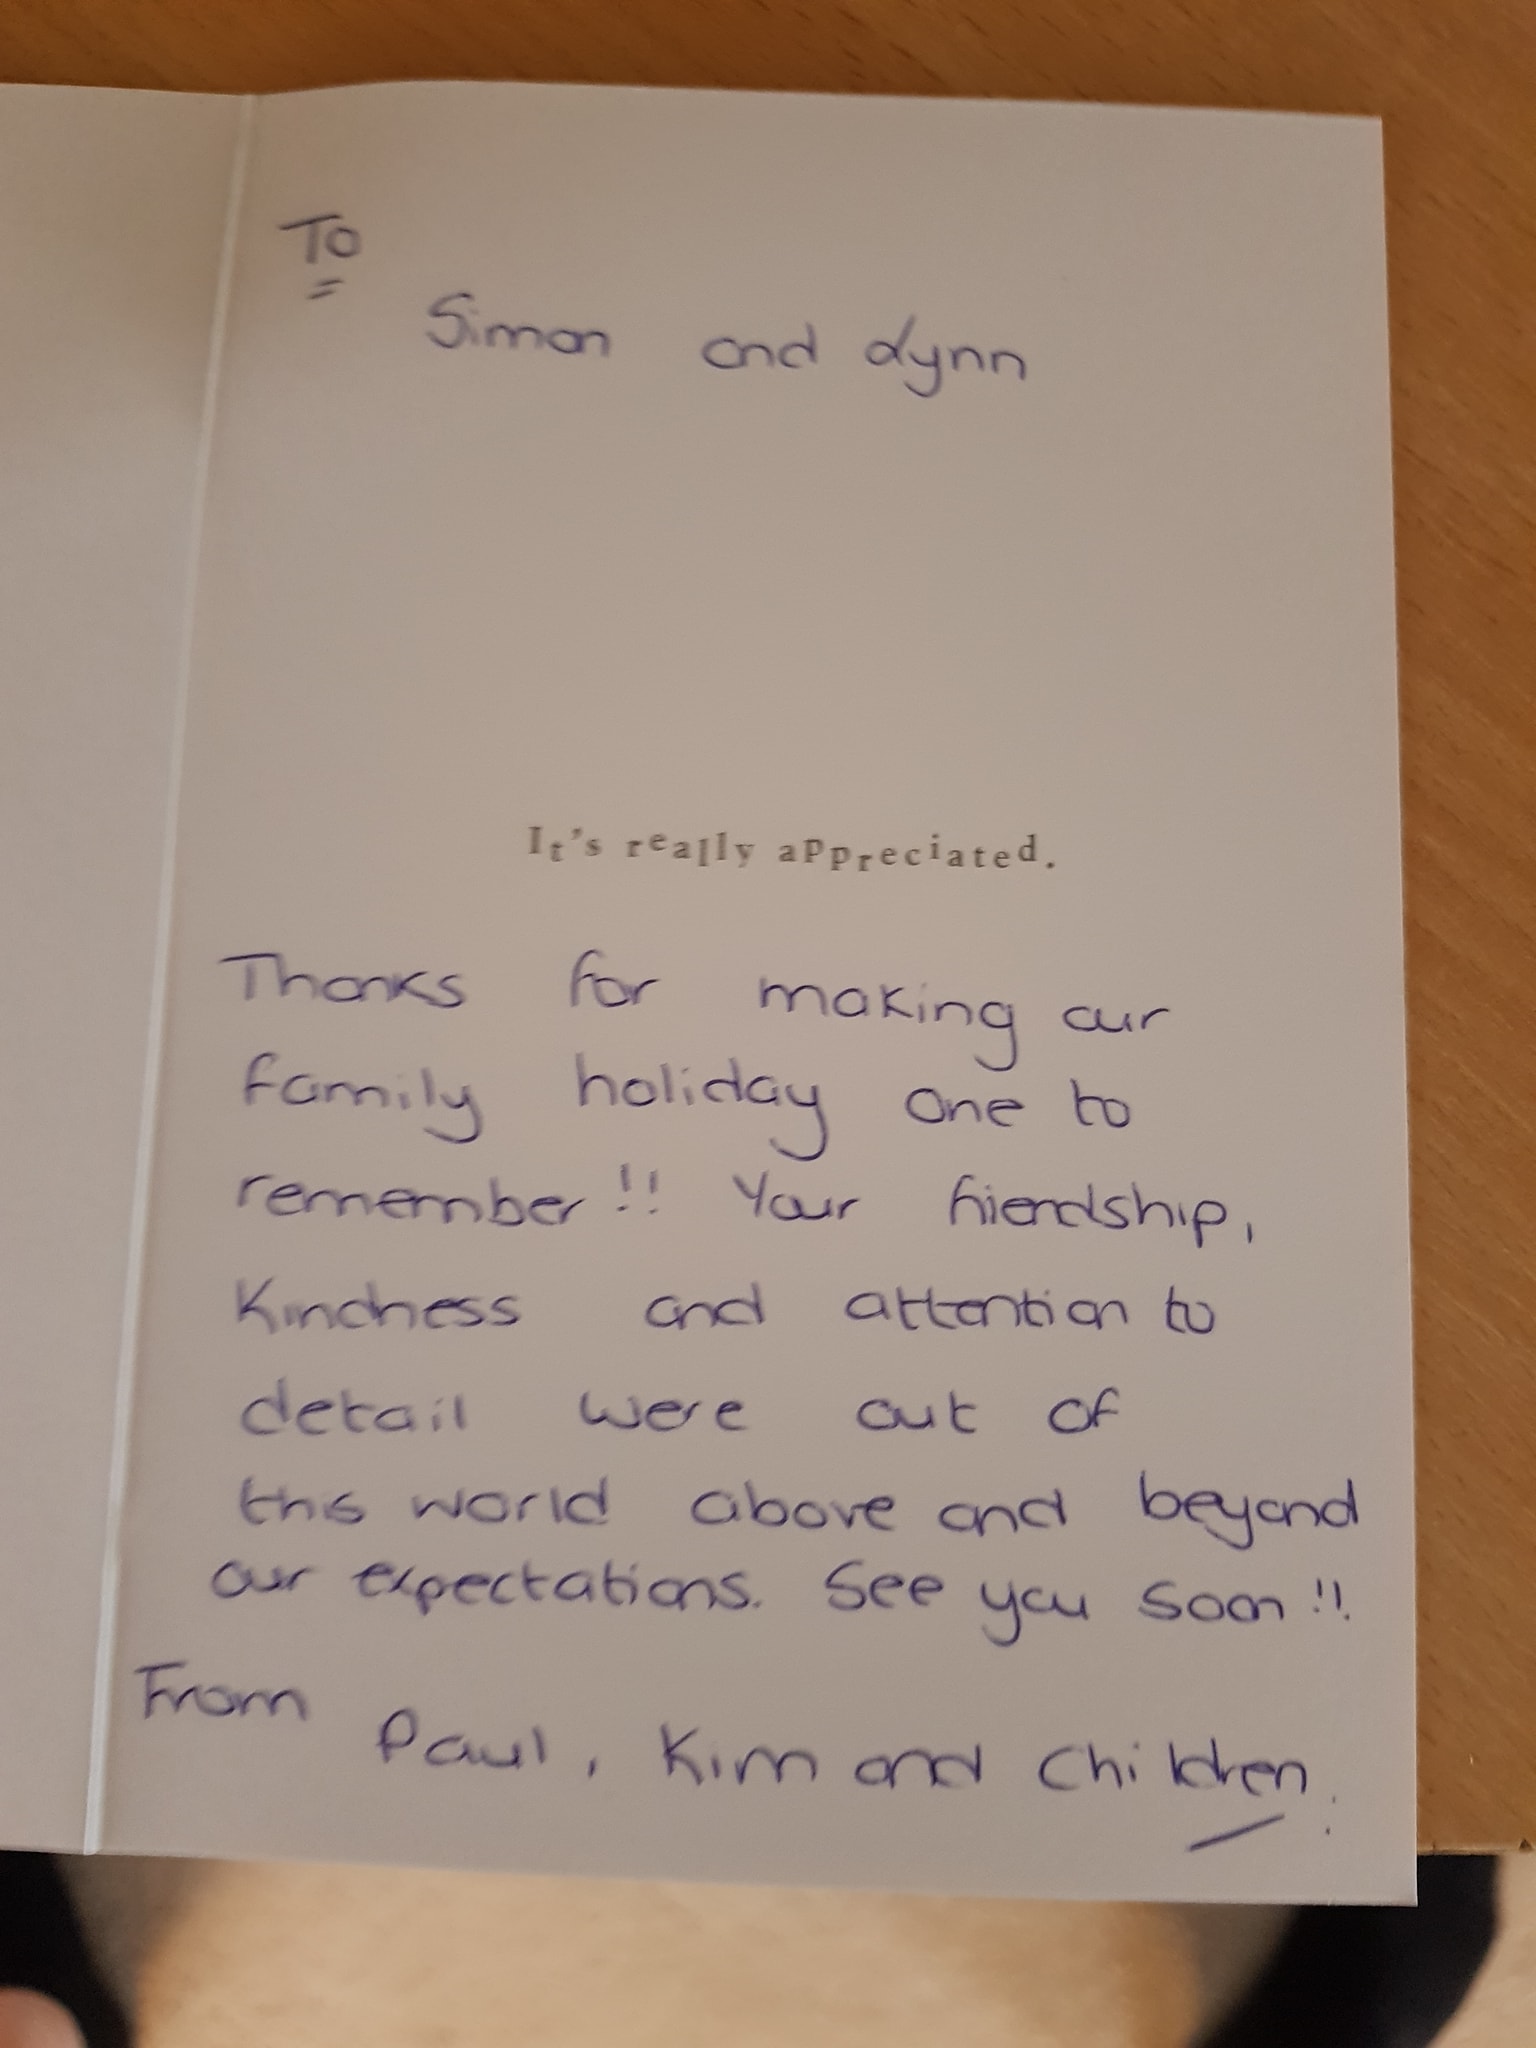 To
Simon and Lynn
It's really appreciated.
Thanks for making our
family holiday one to
remember!! Your friendship,
Kindness and attention to
detail were out of
this world above and beyond
our expectations. See you soon!!
From
Paul, Kim and Children.